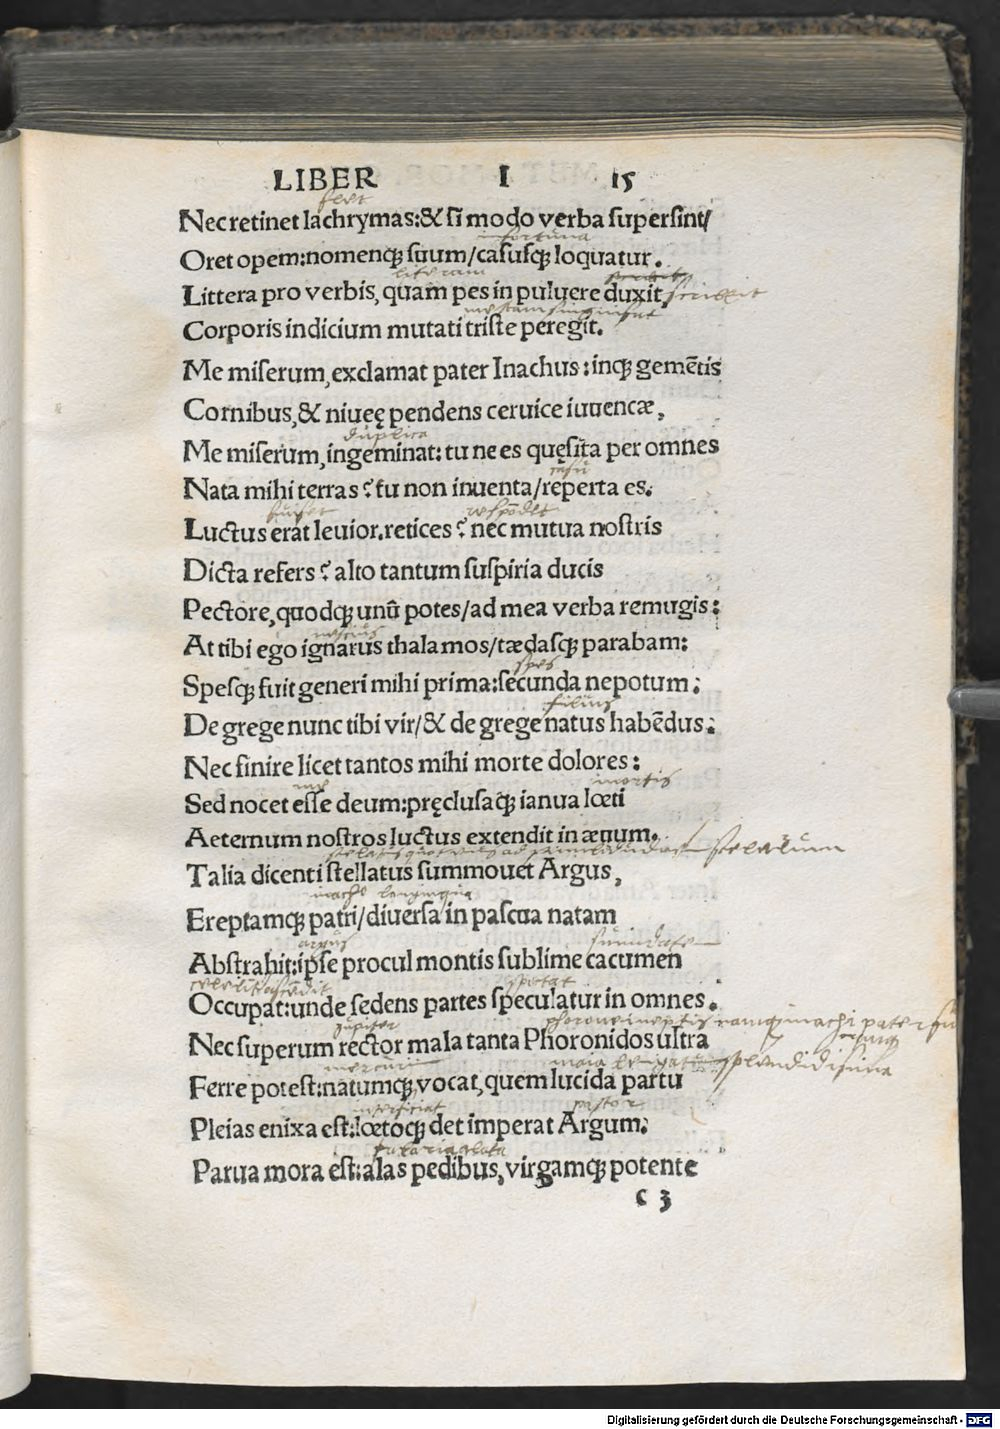 LIBER I 15
fert
Nec retinet lachrymas:& si modo verba supersint/
infortuna
Oret opem:nomenq; suum/casusq; loquatur.
literam
Littera pro verbis, quam pes in puluere duxit, scribit
Corporis indicium mutati triste peregit.
Me miserum, exclamat pater Inachus: inq; gemētis
Cornibus,& niueę pendens ceruice iuuencæ,
duplica
Me miserum, ingeminat: tu ne es quęsita per omnes
Nata mihi terras? tu non inuenta/reperta es.
fuisset respōdes
Luctus erat leuior. retices? nec mutua nostris
Dicta refers? alto tantum suspiria ducis
Pectore, quodq; unū potes/ad mea verba remugis:
nescius
At tibi ego ignarus thalamos/tædasq; parabam:
spes
Spesq; fuit generi mihi prima:secunda nepotum:
filius
De grege nunc tibi vir/& de grege natus habēdus:
Nec finire licet tantos mihi morte dolores:
me mortis
Sed nocet esse deum:pręclusaq; ianua lœti
Aeternum nostros luctus extendit in æuum.
Talia dicenti stellatus summouet Argus,
inachi longinqua
Ereptamq; patri/diuersa in pascua natam
argus
Abstrahit:ipse procul montis sublime cacumen
spectat
Occupat:unde sedens partes speculatur in omnes.
iupiter
Nec superum rector mala tanta Phoronidos ultra
mercuriū maia splendidissima
Ferre potest:natumq; vocat, quem lucida partu
interficiat pastor
Pleias enixa est:lœtoq; det imperat Argum:
Parua mora est:alas pedibus, virgamq; potente
c 3
Digitalisierung gefördert durch die Deutsche Forschungsgemeinschaft - DFG